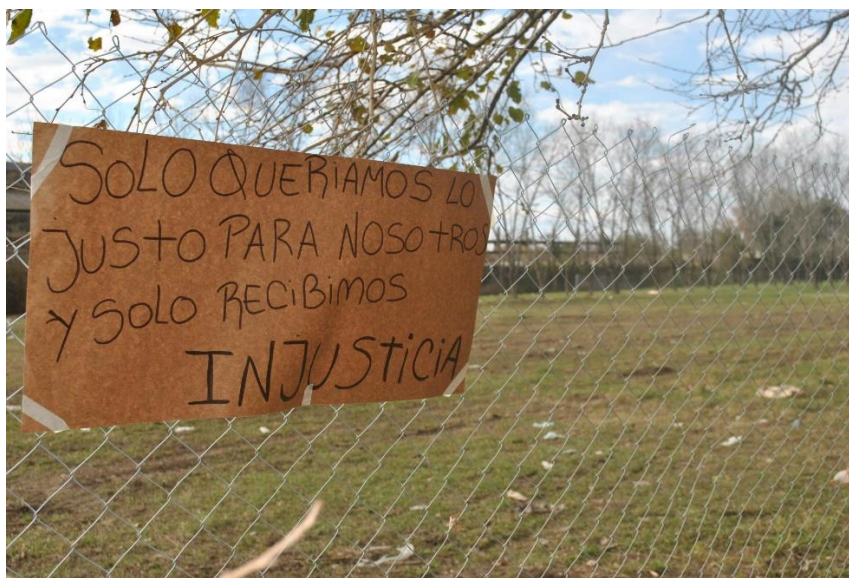 SOLO QUERIAMOS LO
JUSTO PARA NOSOTROS
Y SOLO RECIBIMOS
INJUSTICIA